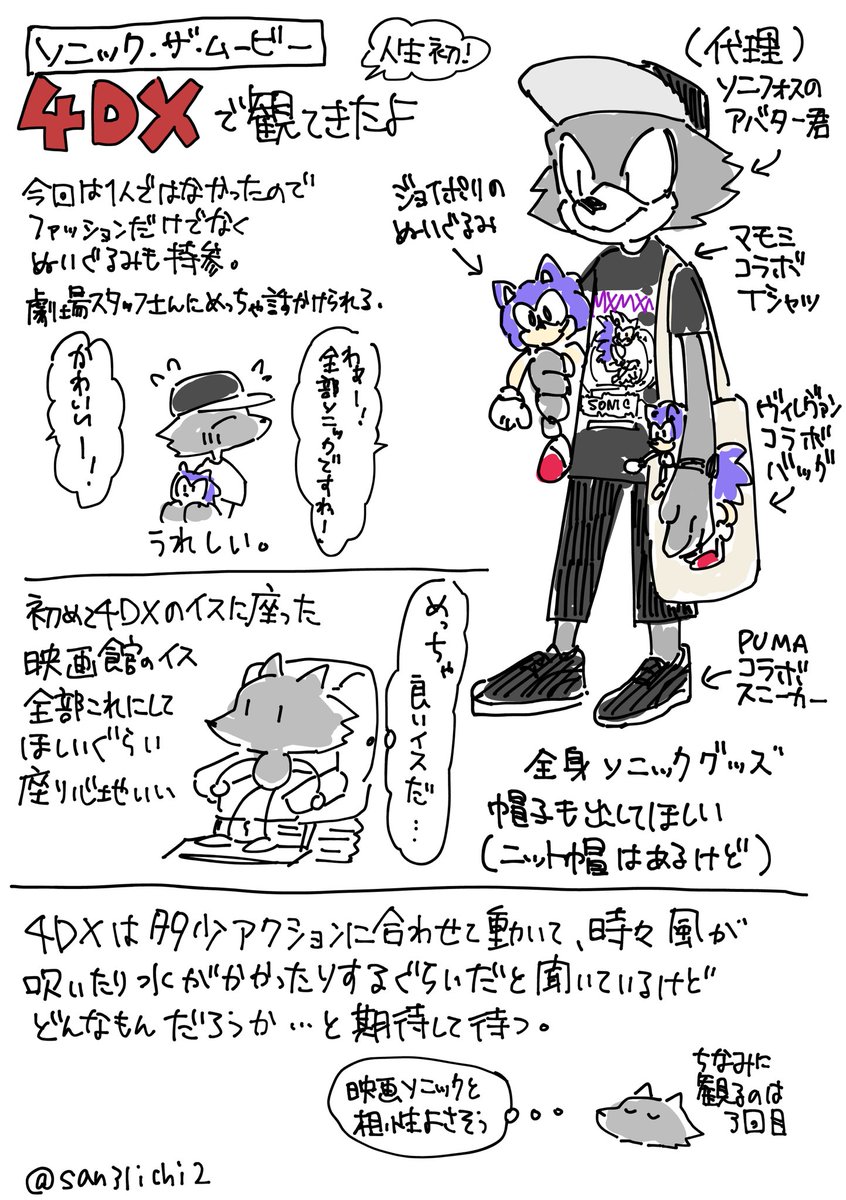 ソニック・ザ・ムービー
4DXで観てきたよ
人生初!
今回は1人ではなかったので
ファッションだけでなく
ぬいぐるみも持参。
劇場スタッフさんにめっちゃ話かけられる.
わぁー!
全部ソニックですねー!
かわいいー!
うれしい。
(代理)
ソニフォスの
アバター君
ジョイポリの
ぬいぐるみ
マモミ
コラボ
Tシャツ
MXMXM
SONIC
ヴィレヴァン
コラボ
バッグ
PUMA
コラボ
スニーカー
全身ソニックグッズ
帽子も出してほしい
(ニット帽はあるけど)
初めて4DXのイスに座った
映画館のイス
全部これにして
ほしいぐらい
座り心地いい
めっちゃ
良いイスだ…
4DXは多少アクションに合わせて動いて、時々風が
吹いたり水がかかったりするぐらいだと聞いているけど
どんなもんだろうか…と期待して待つ。
映画ソニックと
相性よさそう
ちなみに
観るのは
3回目
@san31ichi2